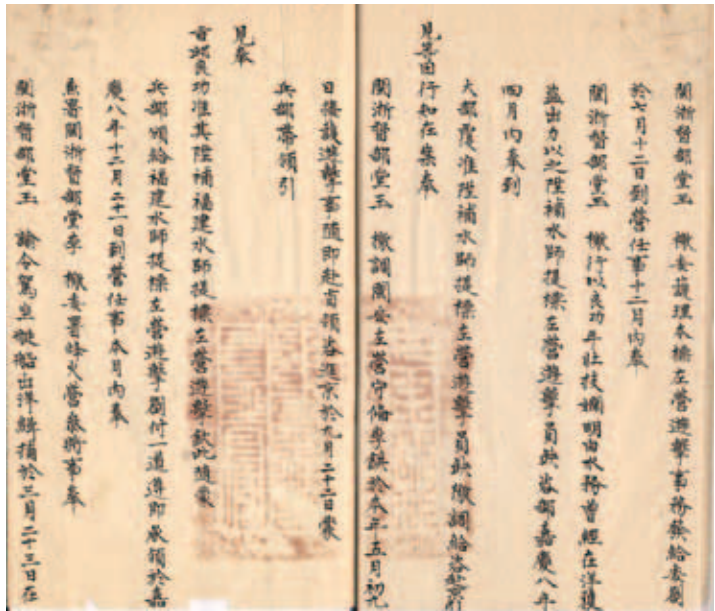 閩浙督部堂玉　檄委護理本標左營遊擊事務發給委劄
於七月十二日到營任事十二月內奉
閩浙督部堂玉　檄行以良功年壯技嫻明白水務曾經在洋獲
盜出力以之陞補水師提標左營遊擊員缺咨部嘉慶八年
四月內奉到
大部覆准陞補水師提標左營遊擊員缺檄調給咨赴行
見等由行知在案奉
閩浙督部堂玉　檄調閩安左營守備李 於本年五月初九
日接護遊擊事隨即赴省領咨進京於九月二十二日蒙
兵部帶領引
見奉
旨邱良功准其陞補福建水師提標左營遊擊欽此隨蒙
兵部頒給福建水師提標左營遊擊劄付一道遵即承領於嘉
慶八年十二月二十一日到營任事本月內奉
兼署閩浙督部堂李　檄委署烽火營參將事奉
閩浙督部堂玉　諭令駕坐 船出洋緝捕於三月二十三日在